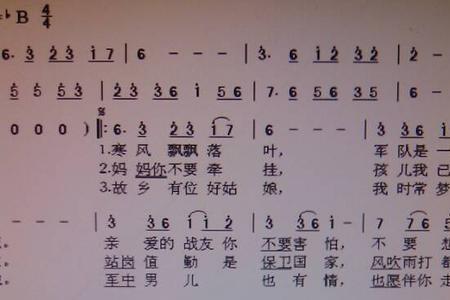 ♭B 4/4
6. 3 2 3 i 7 | 6 - - - | 3. 6 i 2 3 2 | 2 -
5 5 5 3 | 2 3 3 6 i 5 6 | 7. 6 5 6 3 5 | 6 -
0 0 0 ) ‖: 6. 3 2 3 i 7 | 6 - - - | 3 3 6
1.寒 风 飘飘 落 叶, 军 队是 一
2.妈 妈你不要 牵 挂, 孩 儿我 已
3.故 乡 有位 好姑 娘, 我 时常 梦
- - - | 3 3 6 i i 2 | 3 3 6 i 6 | 7 7 6
亲 爱的 战友 你 不要害 怕, 不 要 想
站岗 值 勤 是 保卫国 家, 风吹雨打 都
军中 男 儿 也 有 情, 也愿伴你 走